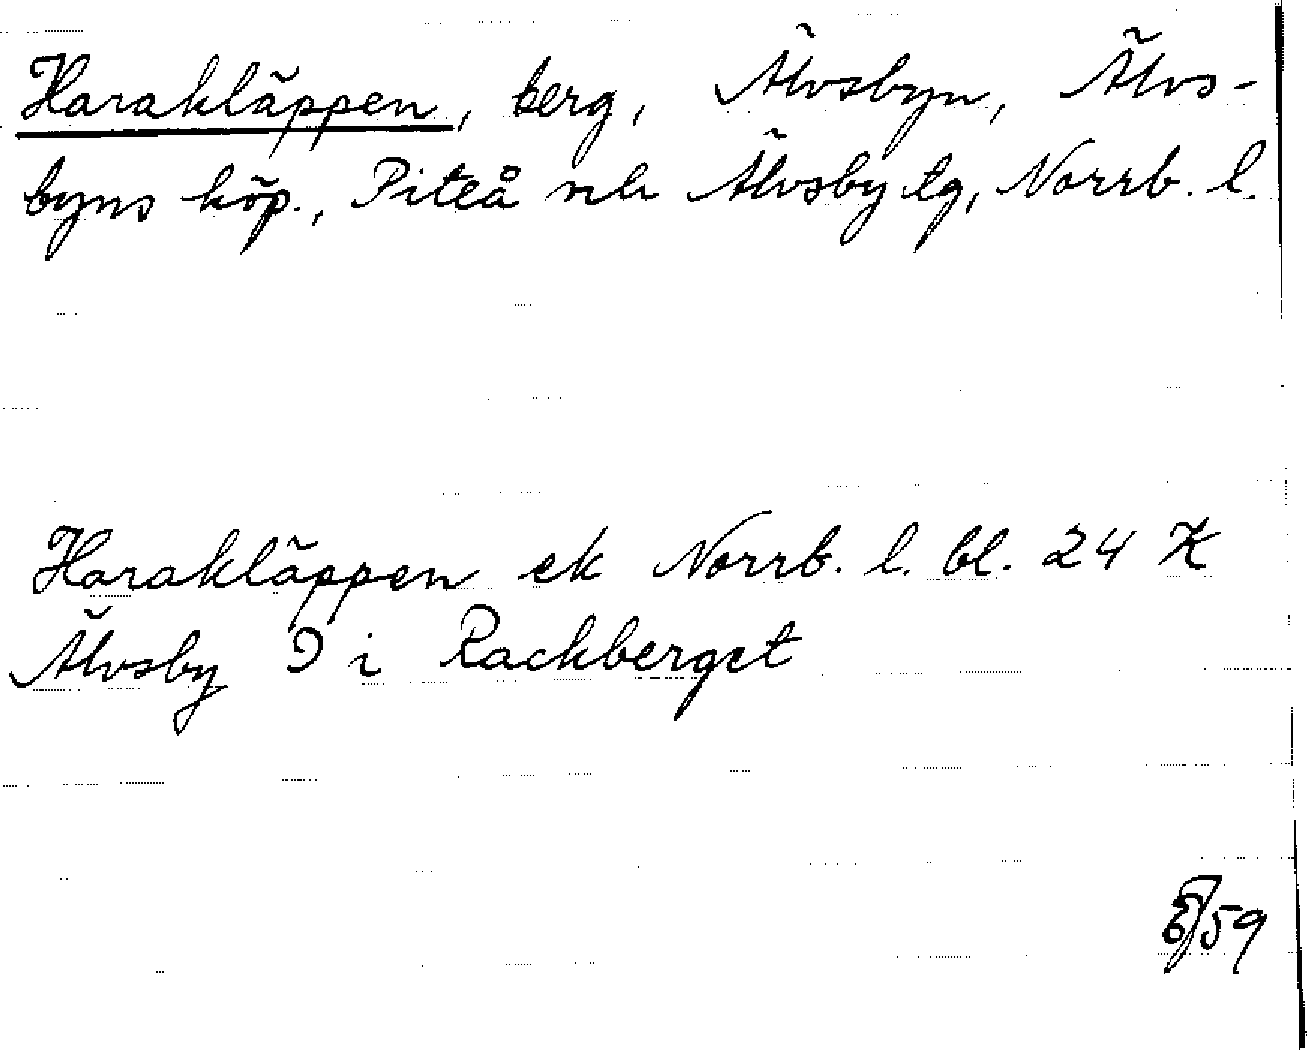 Harakläppen, berg, Älvsbyn, Älvs-
byns köp., Piteå och Älvsby tg, Norrb. l.
Harakläppen ek Norrb. l. bl. 24 K
Älvsby I i Rackberget
59